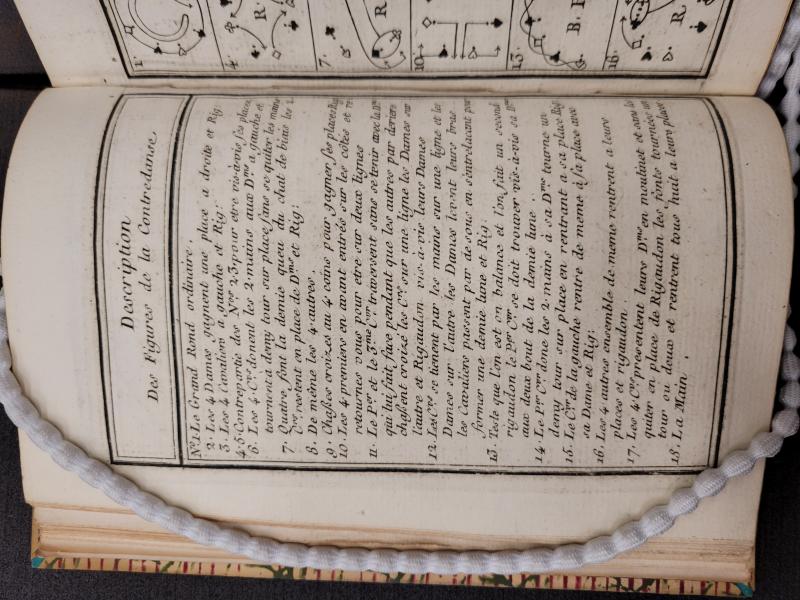 Description
Des Figures de la Contredanse.
No.1. Le Grand Rond ordinaire.
2. Les 4 Dames gagnent une place a droite et Rig:
3. Les 4 Cavaliers a gauche et Rig:
4.5. Contrepartie des Nos. 2,3 pour etre vis-a-vis ses places
6. Les 4 Crs. donent les 2 mains aux Dmes a gauche et
tournent a demy tour sur place sans se quiter les mains
7. Quatre, font la demie queu du chat de biais les 2
Crs. restent en place de Dmes et Rig:
8. De même les 4 autres.
9. Chasses croizes au 4 coins pour gagner ses places Rig
10. Les 4 premiers en avant entrés sur les côtés et re-
retournes vous pour etre sur deux lignes
11. Le Per et le 3me Cer traversent sans se tenir avec la Dme
qui lui fait face pendant que les autres par deriere
chassent croizé les Crs sur une ligne les Dames sur
l'autre et Rigaudon vis-à-vis leurs Dames
12. Les Crs se tienent par les mains sur une ligne et les
Dames sur l'autre les Dames levent leurs bras
les Cavaliers passent par desous en s'entrelacant pour
former une demie lune et Rig:
13. Teste que l'on est on balance et l'on fait un second
rigaudon le Per Cer se doit trouver vis-à-vis sa Dme
aux deux bout de la demie lune.
14. Le Per Cer done les 2 mains à sa Dme tourne un
demy tour sur place en rentrant a sa place Rig
15. Le Cer de la gauche rentre de meme à sa place avec
sa Dame et Rig:
16. Les 4 autres ensemble de meme rentrent a leurs
places et rigaudon.
17. Les 4 Crs presentent leurs Dmes en moulinet et sans se
quiter en place de Rigaudon les fonts tournées un
tour ou deux et rentrent tous huit a leurs places
18. La Main.
1
4.
R.
7.
R
10
13
B. R
16
R.